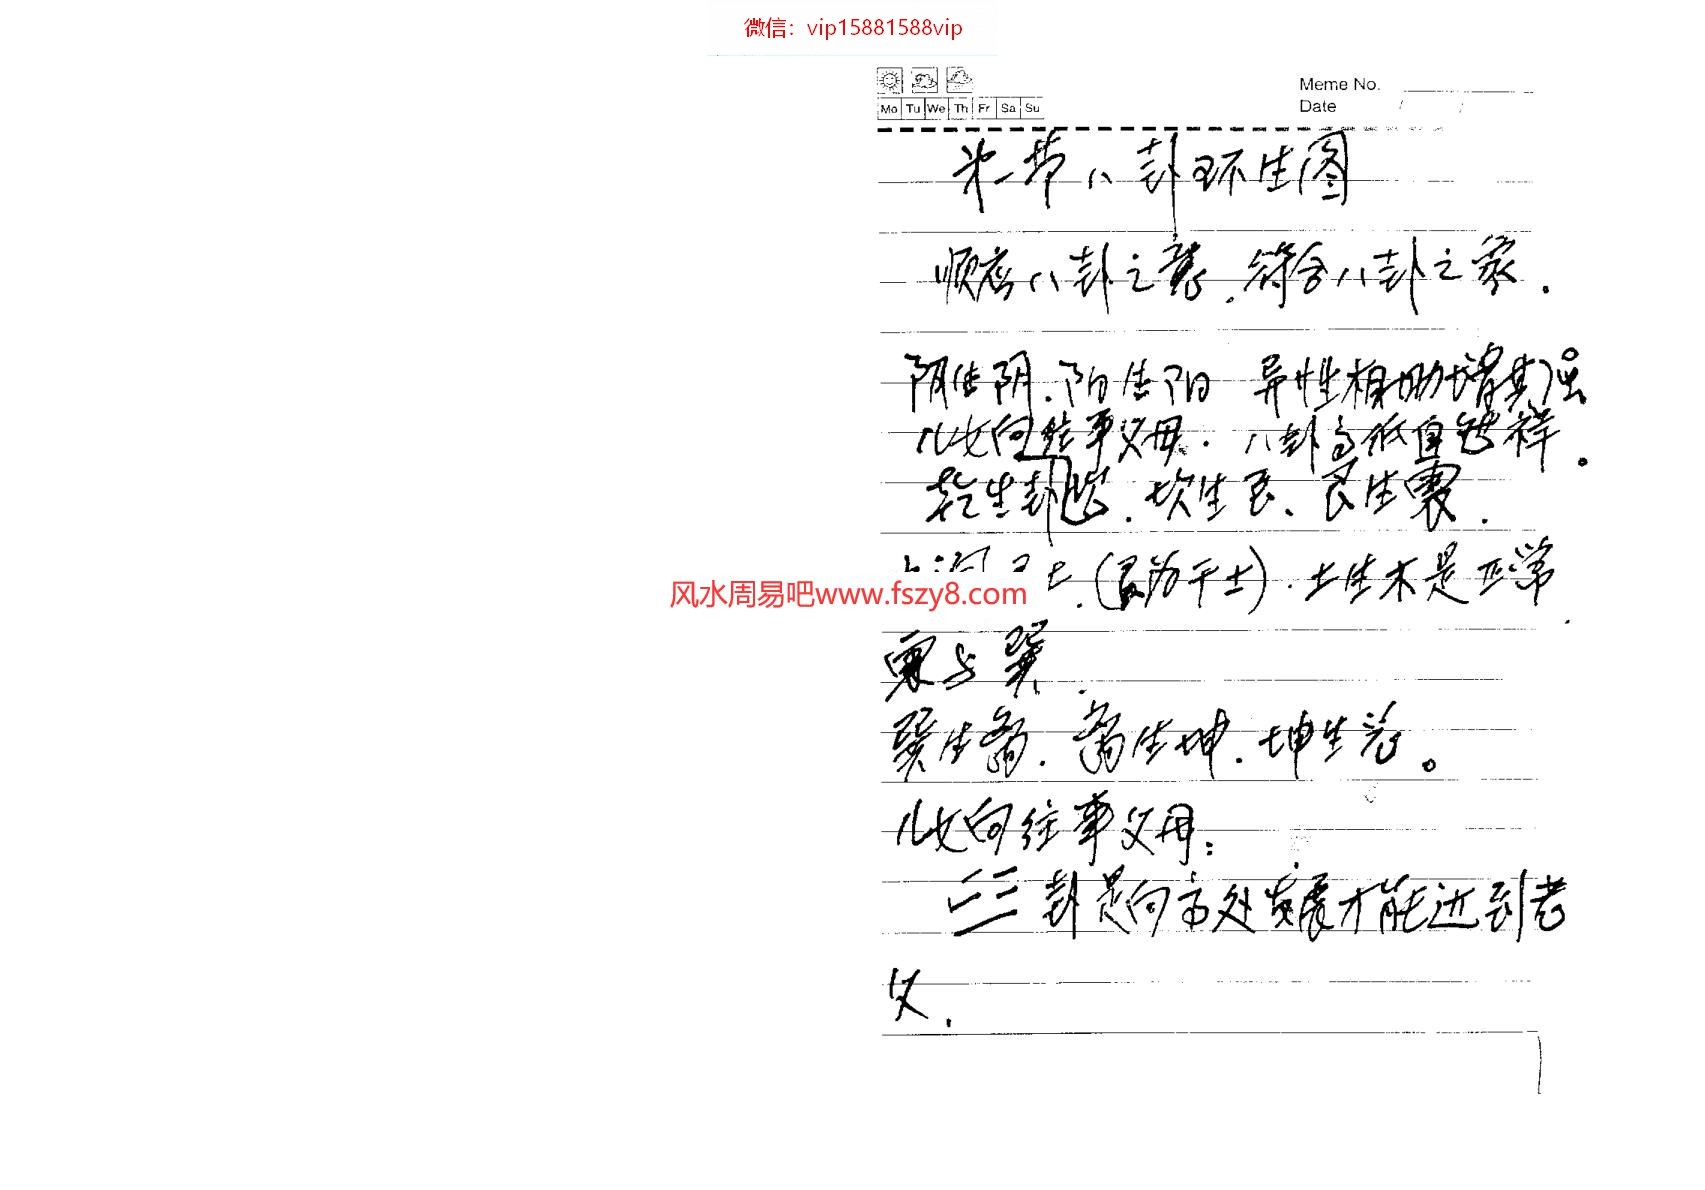 微信：vip15881588vip
Meme No.
Mo Tu We Th Fr Sa Su
Date / /
第一节八卦环生图
顺应八卦之意，符合八卦之家．
阴生阴．阳生阳 异性相助增其强
儿女向往事父母．八卦高低自	祥。
乾生坎．坎生艮、艮生震．
(艮为干土)．土生木是正常
风水周易吧www.fszy8.com
震与巽．
巽生离．离生坤．坤生兑。
儿女向往事父母：
二三卦是向高处发展才能达到老
父．